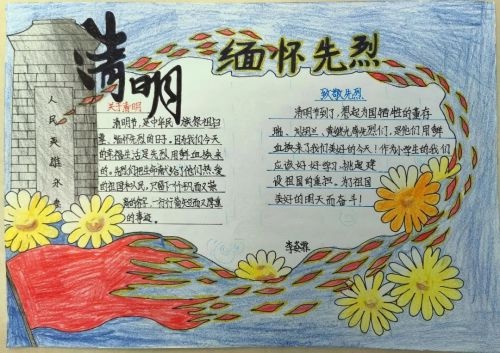 清明
缅怀先烈
人民英雄永垂
关于清明
清明节,是中华民族祭祖扫
墓、缅怀先烈的日子,因为我们今天
的幸福生活是先烈用鲜血换来
的。先烈们把生命献给了他们热爱
的祖国和人民,只留下
一行行
的事迹。
致敬先烈
清明节到了,想起为国牺牲的董存
瑞、刘胡兰、黄继光等先烈们,是他们用鲜
血换来了我们美好的今天!作为小学生的我们
应该好好学习,挑起建
设祖国的重担,为了祖国
美好的明天而奋斗!